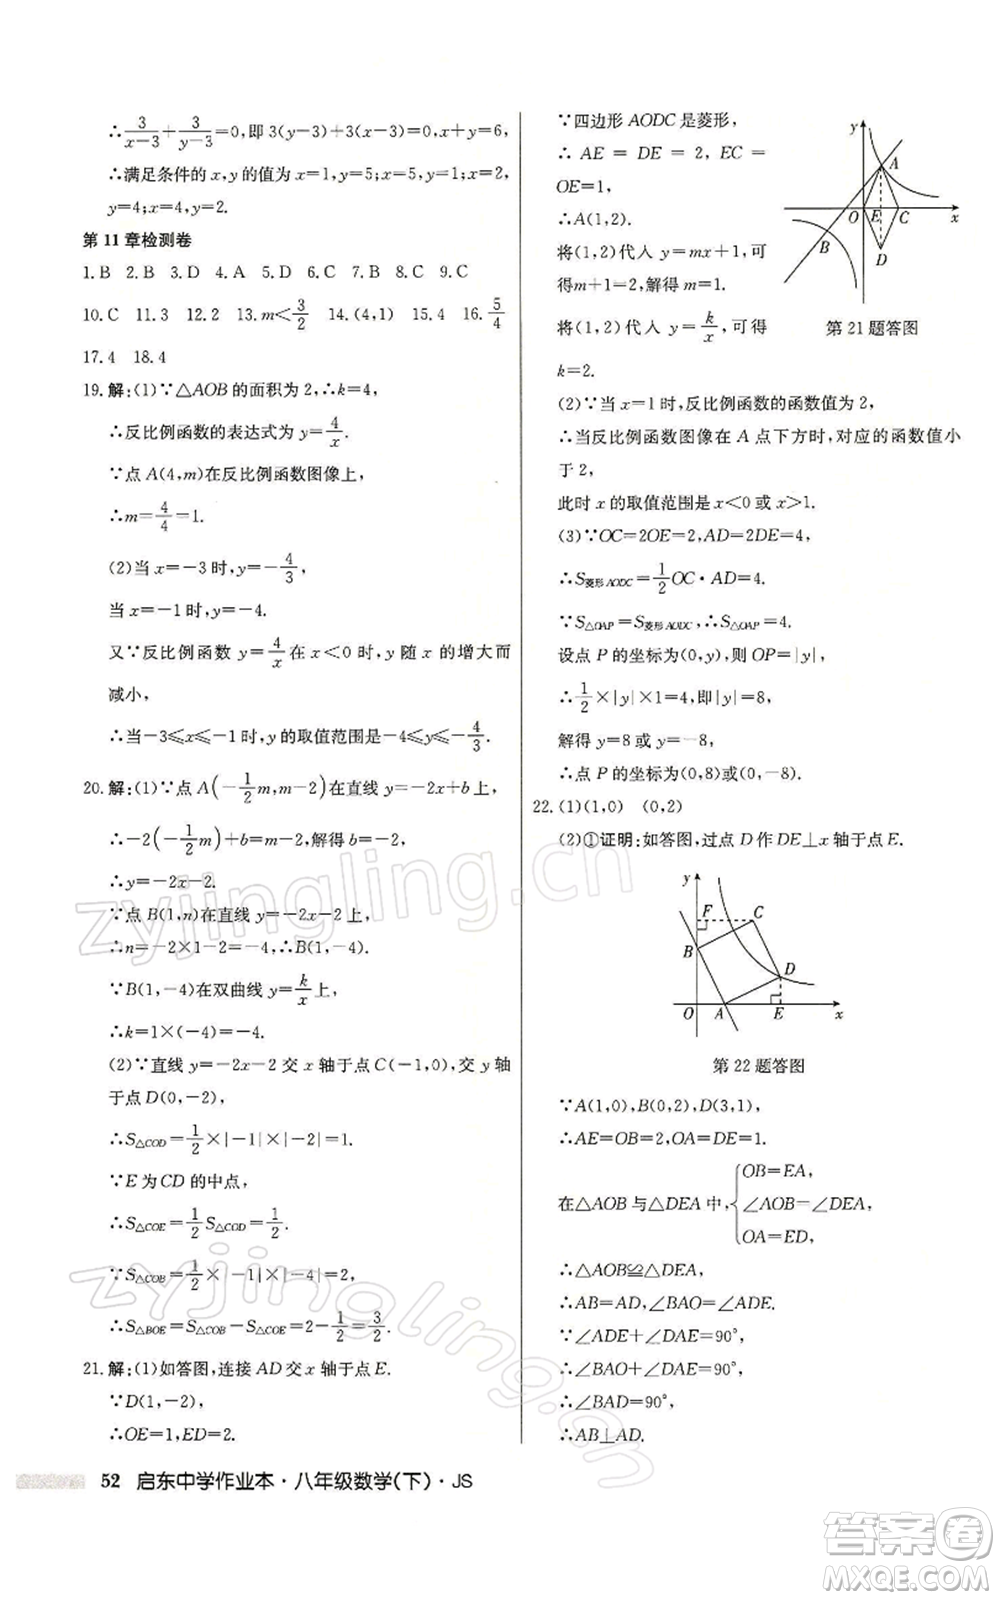 ∴3/(x-3)+3/(y-3)=0,即 3(y-3)+3(x-3)=0,x+y=6,
∴满足条件的x,y的值为x=1,y=5;x=2,
y=4;x=4,y=2.
第11章检测卷
1.B 2.B 3.D 4.A 5.D 6.C 7.B 8.C 9.C
10.C 11.3 12.2 13.m<3/2 14.(4,1) 15.4 16.5/4
17.4 18.4
19.解:(1)∵△AOB的面积为2,∴k=4,
∴反比例函数的表达式为y=4/x.
∵点A(4,m)在反比例函数图像上,
∴m=4/4=1.
(2)当x=-3时,y=-4/3,
当x=-1时,y=-4.
又∵反比例函数 y=4/x 在x<0时,y随x的增大而
减小,
∴当-3≤x≤-1时,y的取值范围是-4≤y≤-4/3.
20.解:(1)∵点A(-1/2m,m-2)在直线y=-2x+b上,
∴-2(-1/2m)+b=m-2,解得b=-2,
∴y=-2x-2.
∵点B(1,n)在直线y=-2x-2上,
∴n=-2×1-2=-4,∴B(1,-4).
∵B(1,-4)在双曲线y=k/x上,
∴k=1×(-4)=-4.
(2)∵直线y=-2x-2交x轴于点C(-1,0),交y轴
于点D(0,-2),
∴S△COD=1/2×|-1|×|-2|=1.
∵E为CD的中点,
∴S△COE=1/2S△COD=1/2.
∵S△COB=1/2×|-1|×|-4|=2,
∴S△BOE=S△COB-S△COE=2-1/2=3/2.
21.解:(1)如答图,连接AD交x轴于点E.
∵D(1,-2),
∴OE=1,ED=2.
52 启东中学作业本·八年级数学(下)·JS
∵四边形AODC是菱形,
∴AE=DE=2,EC=
OE=1,
∴A(1,2).
将(1,2)代入y=mx+1,可
得m+1=2,解得m=1.
将(1,2)代入y=k/x,可得
k=2.
y
A
O
E
C
x
B
D
第21题答图
(2)∵当x=1时,反比例函数的函数值为2,
∴当反比例函数图像在A点下方时,对应的函数值小
于2,
此时x的取值范围是x<0或x>1.
(3)∵OC=2OE=2,AD=2DE=4,
∴S菱形AODC=1/2OC·AD=4.
∵S△OAP=S菱形AODC,∴S△OAP=4.
设点P的坐标为(0,y),则OP=|y|,
∴1/2×|y|×1=4,即|y|=8,
解得y=8或y=-8,
∴点P的坐标为(0,8)或(0,-8).
22.(1)(1,0) (0,2)
(2)①证明:如答图,过点D作DE⊥x轴于点E.
y
F
C
B
D
O
A
E
x
第22题答图
∵A(1,0),B(0,2),D(3,1),
∴AE=OB=2,OA=DE=1.
在△AOB与△DEA中,{OB=EA,
∠AOB=∠DEA,
OA=ED,
∴△AOB≌△DEA,
∴AB=AD,∠BAO=∠ADE.
∵∠ADE+∠DAE=90°,
∴∠BAO+∠DAE=90°,
∴∠BAD=90°,
∴AB⊥AD.
zyjingling.cn
zyjingling.cn
答案圈
MXQE.COM